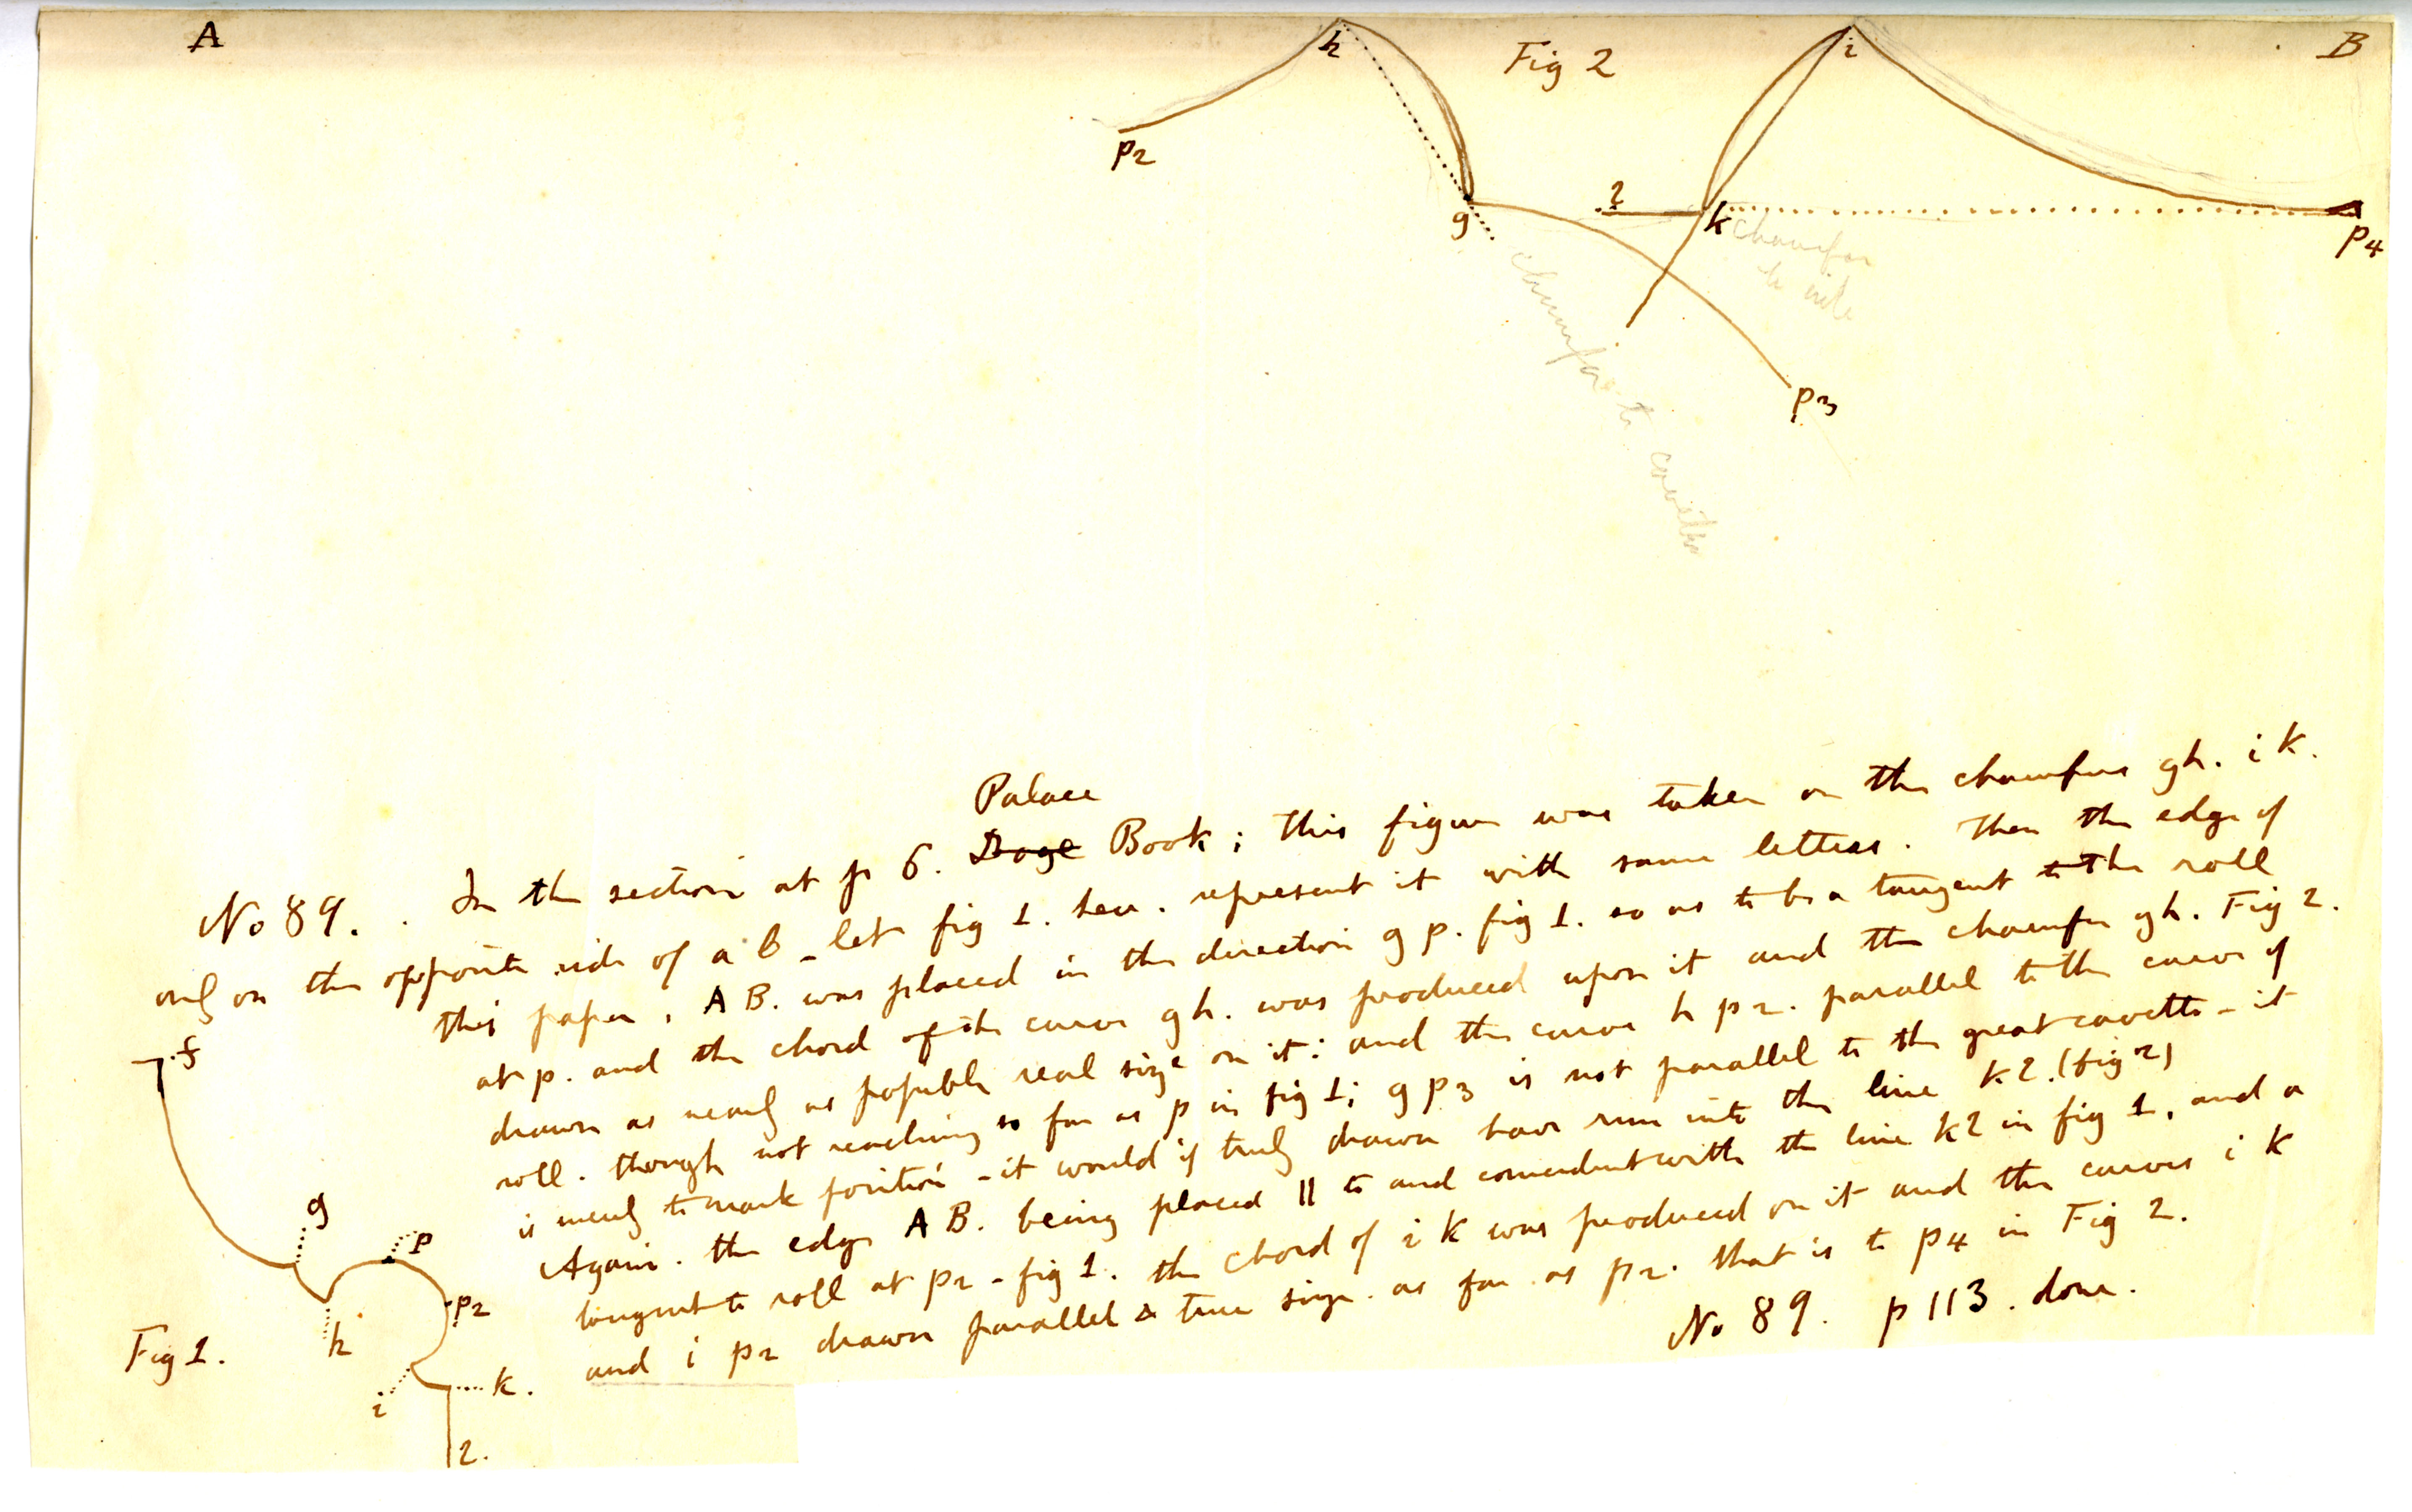 A
h
Fig 2
i
B
p2
g
l
k
p4
chamfer
p3
chamfer to cavetto
Palace
No 89. . In the section at p 6. Doge Book; this figure was taken on the chamfers gh. i k.
only on the opposite side of a b - let fig 1. here. represent it with same letters. Then the edge of
this paper, A B. was placed in the direction g p. fig 1. so as to be a tangent to the roll
at p. and the chord of the curve g h. was produced upon it and the chamfer gh. Fig 2.
drawn as nearly as possible real size on it: and the curve h p2. parallel to the curve of
roll. though not reaching so far as p in fig 1; g p3 is not parallel to the great cavetto - it
is merely to mark position - it would if truly drawn have run into the line k l. (fig 2)
Again. the edge A B. being placed || to and coincident with the line k l in fig 1, and a
tangent to roll at p2 - fig 1. the chord of i k was produced on it and the curves i k
and i p2 drawn parallel & true size. as far as p2. that is to p4 in Fig 2.
No 89. p 113. done.
f
g
p
p2
Fig 1.
h
i
k.
l.